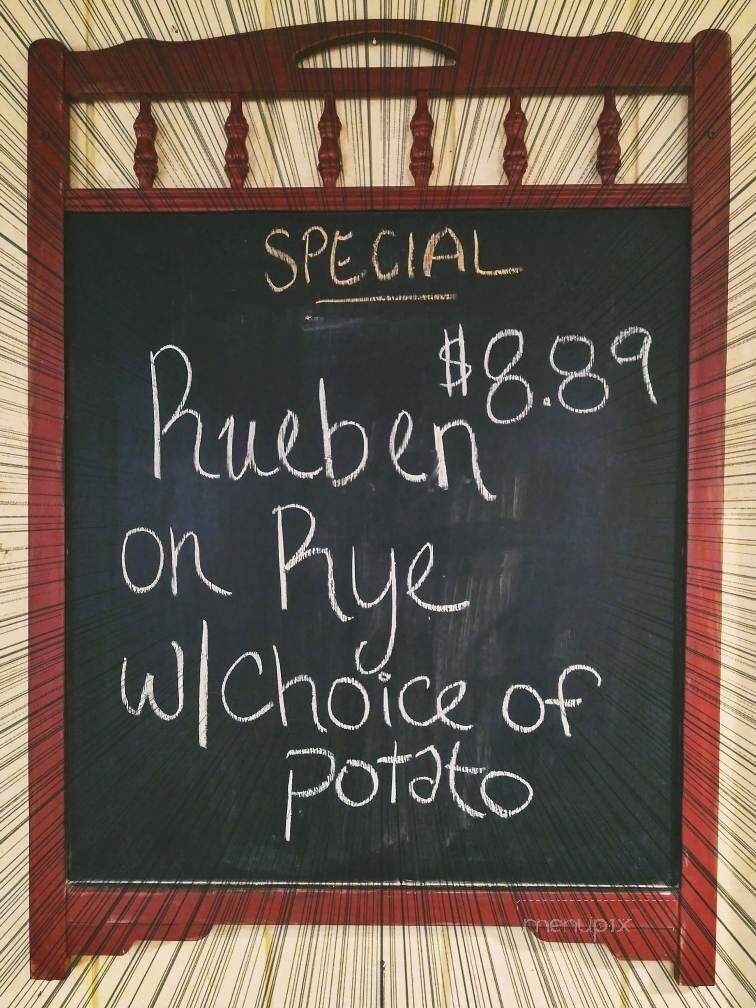 SPECIAL
$8.89
Rueben
on Rye
w/Choice of
potato
menupix